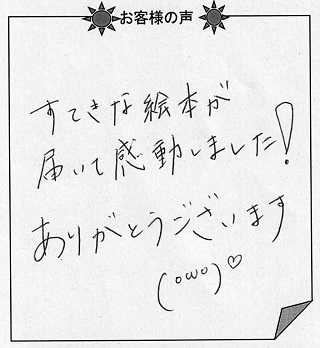 お客様の声
すてきな絵本が
届いて感動しました!
ありがとうございます
(°ω°)♡